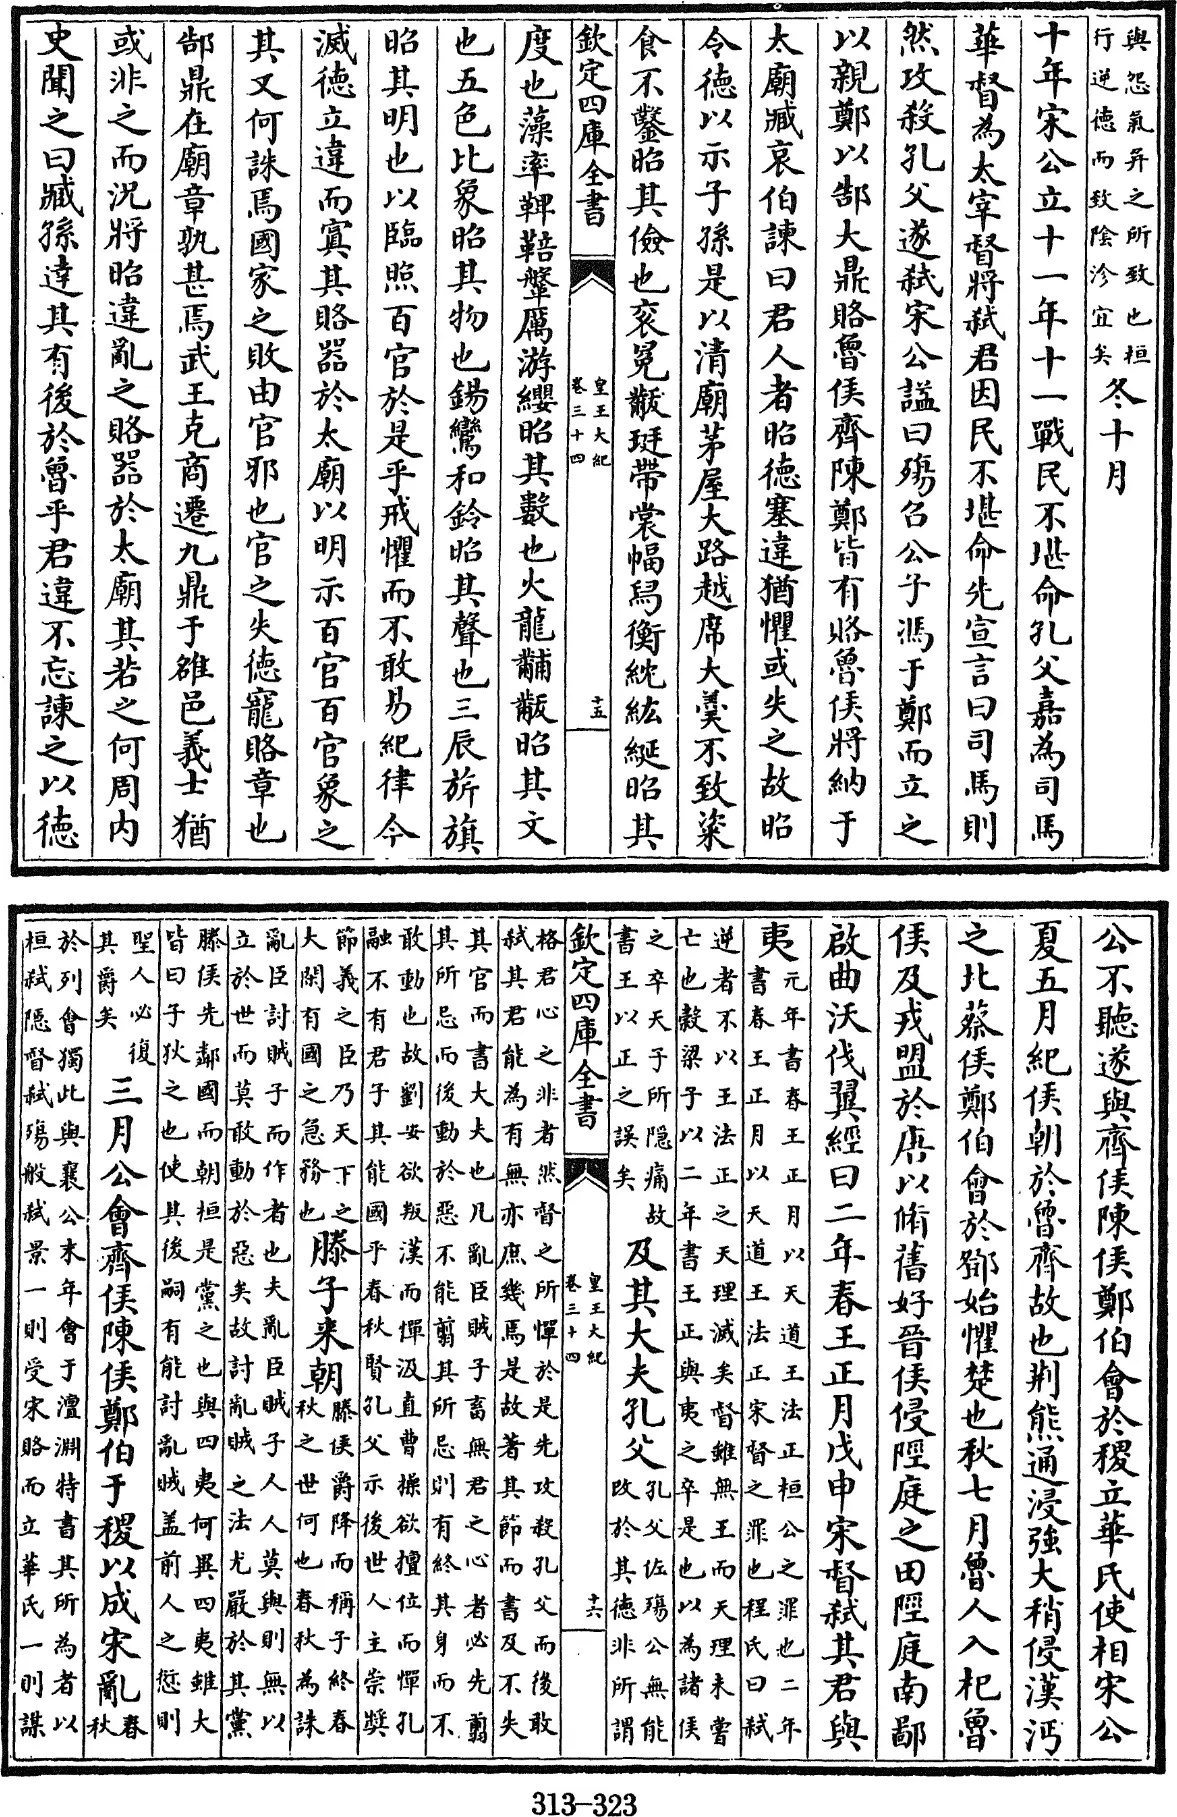 與怨氣昇之所致也桓
行逆德而致陰沴宜矣
冬十月
十年宋公立十一年十一戰民不堪命孔父嘉為司馬
華督為太宰督將弑君因民不堪命先宣言曰司馬則
然攻殺孔父遂弑宋公諡曰殤召公子馮于鄭而立之
以親鄭以郜大鼎賂魯侯齊陳鄭皆有賂魯侯將納于
太廟臧哀伯諫曰君人者昭德塞違猶懼或失之故昭
令德以示子孫是以清廟茅屋大路越席大羹不致粢
食不鑿昭其儉也衮冕黻珽帶裳幅舄衡紞紘綖昭其
欽定四庫全書
皇王大紀
卷三十四
十五
度也藻率鞞鞛鞶厲游纓昭其數也火龍黼黻昭其文
也五色比象昭其物也鍚鸞和鈴昭其聲也三辰旂旗
昭其明也以臨照百官於是乎戒懼而不敢易紀律今
滅德立違而寘其賂器於太廟以明示百官百官象之
其又何誅焉國家之敗由官邪也官之失德寵賂章也
郜鼎在廟章孰甚焉武王克商遷九鼎于雒邑義士猶
或非之而況將昭違亂之賂器於太廟其若之何周内
史聞之曰臧孫達其有後於魯乎君違不忘諫之以德
公不聽遂與齊侯陳侯鄭伯會於稷立華氏使相宋公
夏五月紀侯朝於魯齊故也荆熊通浸強大稍侵漢沔
之北蔡侯鄭伯會於鄧始懼楚也秋七月魯人入杞魯
侯及戎盟於唐以脩舊好晉侯侵陘庭之田陘庭南鄙
啟曲沃伐翼經曰二年春王正月戊申宋督弑其君與
夷
元年書春王正月以天道王法正桓公之罪也二年
書春王正月以天道王法正宋督之罪也程氏曰弑
逆者不以王法正之天理滅矣督雖無王而天理未嘗
亡也榖梁子以二年書王正與夷之卒是也以為諸侯
之卒天子所隱痛故
書王以正之誤矣
及其大夫孔父
孔父佐殤公無能
改於其德非所謂
欽定四庫全書
皇王大紀
卷三十四
十六
格君心之非者然督之所憚於是先攻殺孔父而後敢
弑其君能為有無亦庶幾焉是故著其節而書及不失
其官而書大夫也凡亂臣賊子畜無君之心者必先翦
其所忌而後動於惡不能翦其所忌則有終其身而不
敢動也故劉安欲叛漢而憚汲直曹操欲擅位而憚孔
融不有君子其能國乎春秋賢孔父示後世人主崇奬
節義之臣乃天下之
大閑有國之急務也
滕子来朝
滕侯爵降而稱子終春
秋之世何也春秋為誅
亂臣討賊子而作者也夫亂臣賊子人人莫與則無以
立於世而莫敢動於惡矣故討亂賊之法尤嚴於其黨
滕侯先鄰國而朝桓是黨之也與四夷何異四夷雖大
皆曰子狄之也使其後嗣有能討亂賊盖前人之愆則
聖人必復
其爵矣
三月公會齊侯陳侯鄭伯于稷以成宋亂
春
秋
於列會獨此與襄公末年會于澶淵特書其所為者以
桓弑隱督弑殤般弑景一則受宋賂而立華氏一則謀
313-323